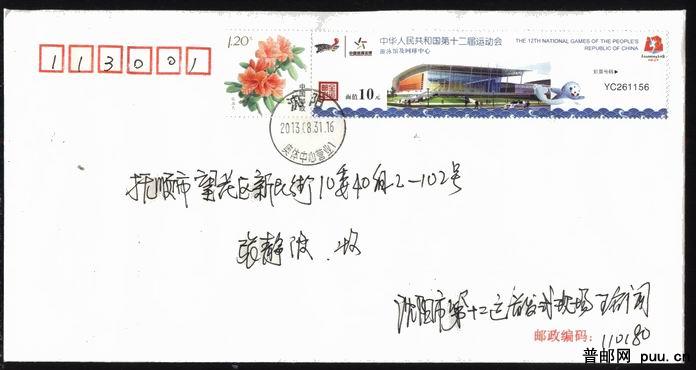 113001
1.20元
中国邮政
中华人民共和国第十二届运动会
游泳馆及网球中心
THE 12TH NATIONAL GAMES OF THE PEOPLE'S
REPUBLIC OF CHINA
面值10元
YC261156
沈阳
2013.08.31.16
奥体中心营业1
抚顺市望花区新民街10委40组2-102号
张静波 收
沈阳市第十二运首发式现场
邮政编码:110180
普邮网 puu.cn